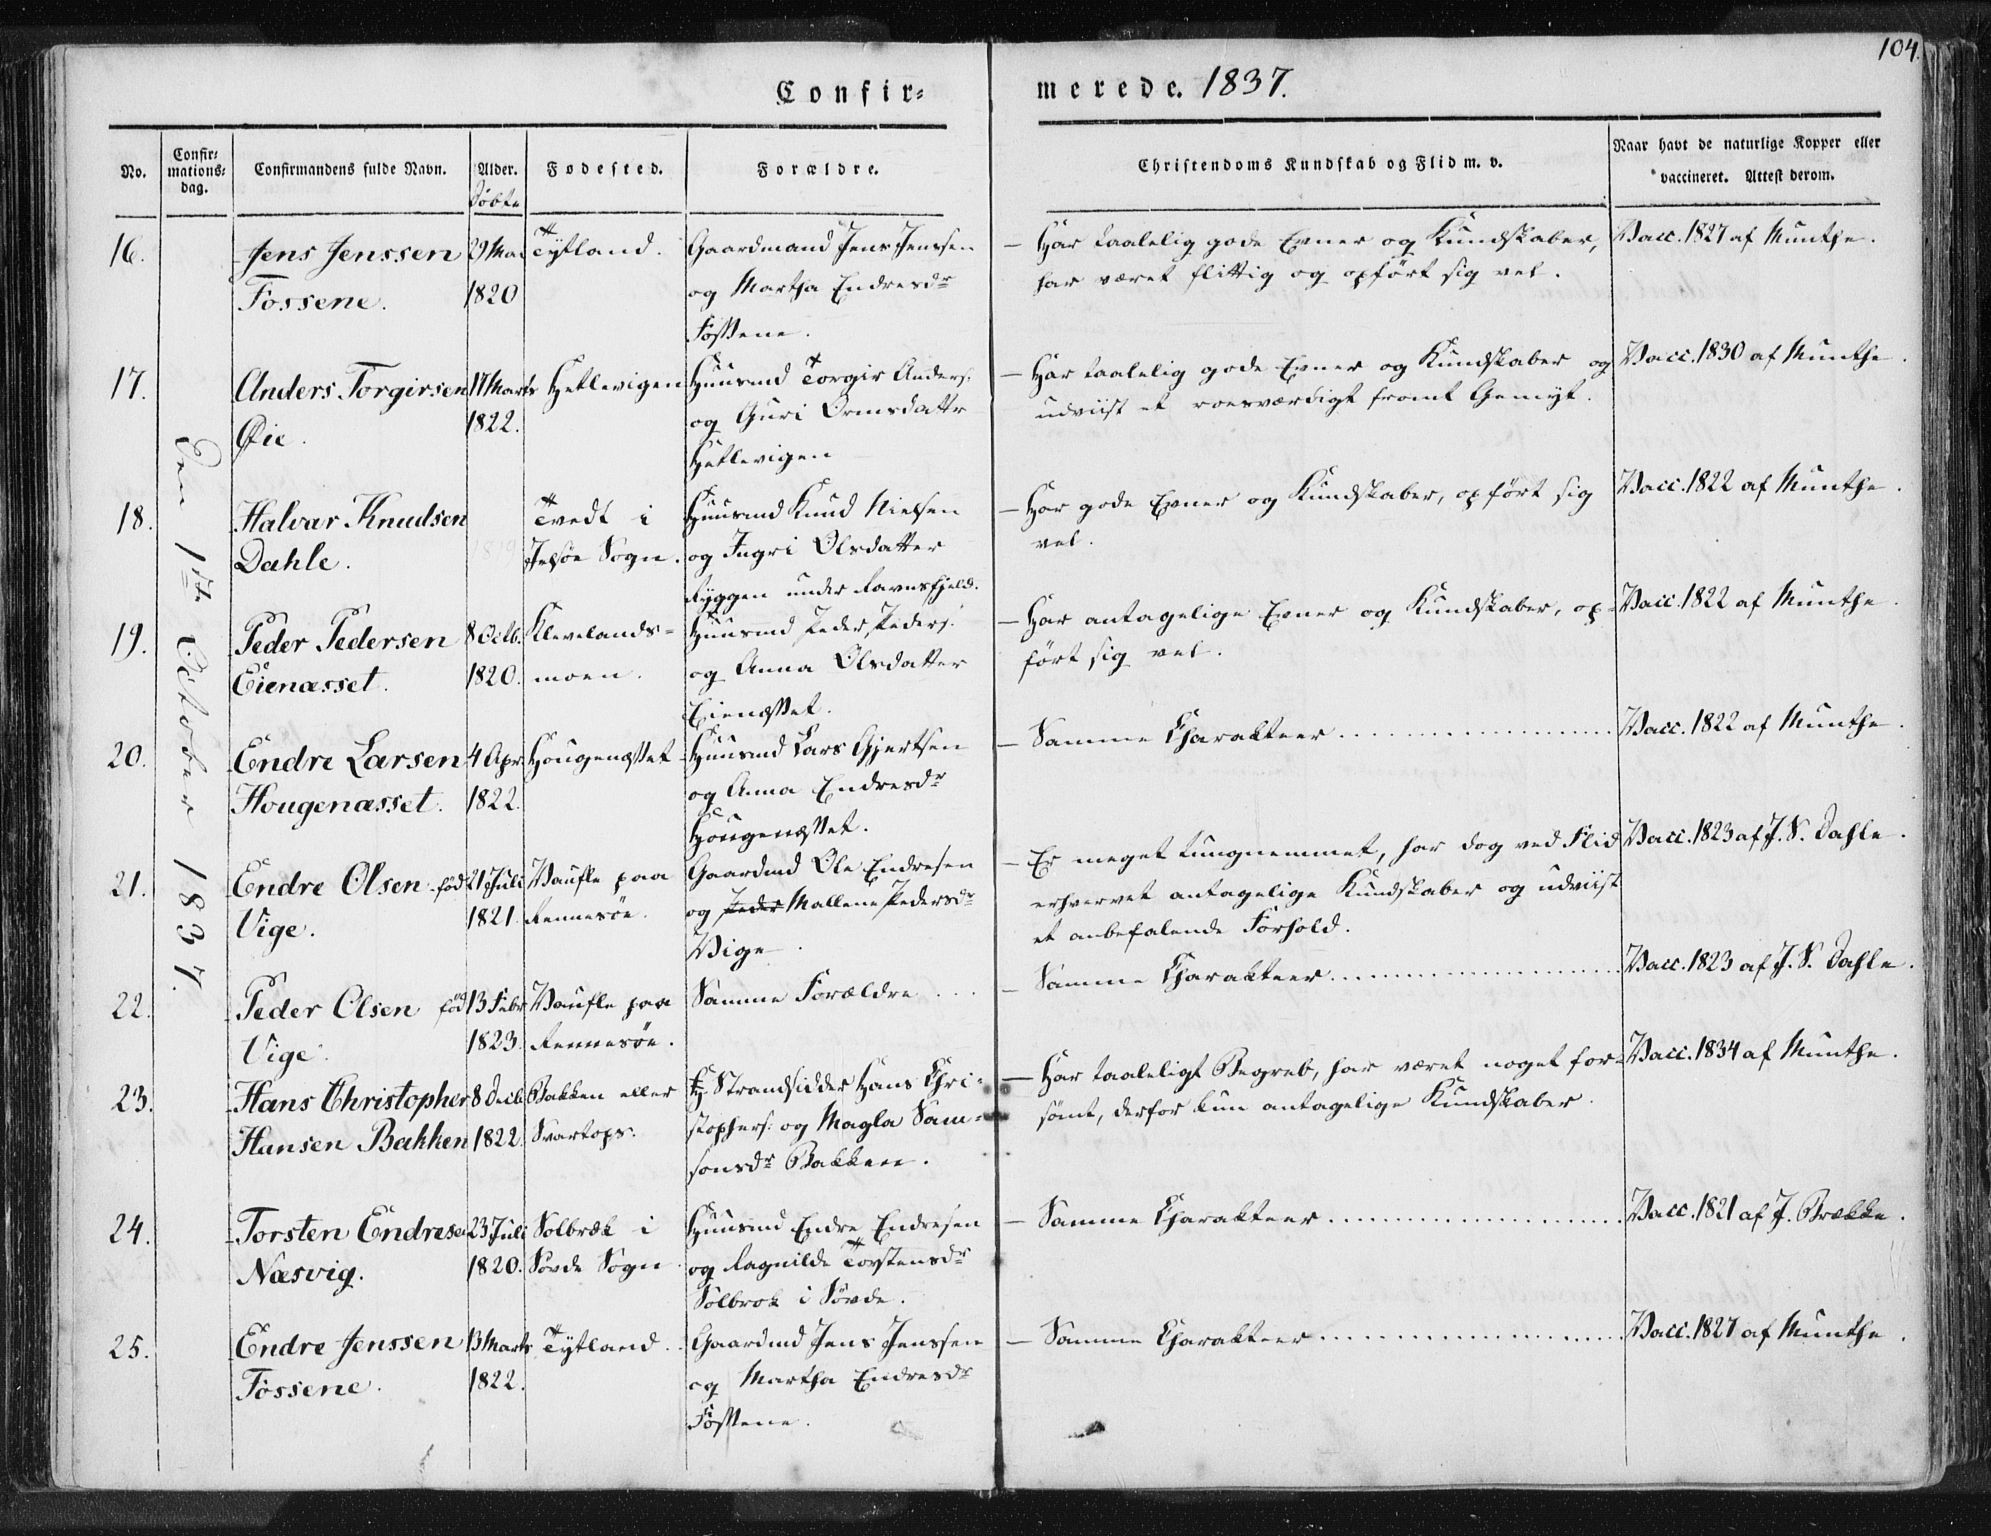 104.
Confir=
merede. 1837.
No.
Confir=
mations=
dag.
Confirmandens fulde Navn.
Alder.
Døbte
Fødested.
Forældre.
Christendoms Kundskab og Flid m. v.
Naar havt de naturlige Kopper eller
vaccineret. Attest derom.
Den 1ste October 1837.
16.
Jens Jenssen
Fossene.
29 Mai
1820
Tytland.
Gaardmand Jens Jenssen
og Martha Endresdr
Fossene.
– Har taalelig gode Evner og Kundskaber,
har været flittig og opført sig vel.
Vacc. 1827 af Munthe.
17.
Anders Torgirsen
Øie.
17 Marts
1822.
Hetlevigen
Huusmd Torgir Anders:
og Guri Ormsdattr
Hetlevigen
– Har taalelig gode Evner og Kundskaber og
udviist et roesværdigt fromt Gemyt.
Vacc. 1830 af Munthe.
18.
Halvar Knudsen
Dahle.
1819
Tvedt i
Jelsøe Sogn.
Huusmd Knud Nielsen
og Ingri Olsdatter
Ryggen under Ravnsfjeld.
– Har gode Evner og Kundskaber, opført sig
vel.
Vacc. 1822 af Munthe.
19.
Peder Pedersen
Eienæsset.
8 Octb.
1820.
Klevelands=
moen.
Huusmd Peder Peders:
og Anna Olsdatter
Eienæsset.
– Har antagelige Evner og Kundskaber, op=
ført sig vel.
Vacc. 1822 af Munthe.
20.
Endre Larsen
Hougenæsset.
4 Apr
1822.
Hougenæsset
Huusmd Lars Gjertsen
og Anna Endresdr
Hougenæsset.
– Samme Charakteer
Vacc. 1822 af Munthe.
21.
Endre Olsen fød
Vige.
21 Juli
1821.
Vaufle paa
Rennesøe.
Gaardmd Ole Endresen
og Peder Mallene Pedersdr
Vige.
– Er meget tungnemmet, har dog ved Flid
erhvervet antagelige Kundskaber og udviist
et anbefalende Forhold.
Vacc. 1823 af J. S. Dahle.
22.
Peder Olsen fød
Vige.
13 Febr
1823.
Vaufle paa
Rennesøe.
Samme Forældre
– Samme Charakteer
Vacc. 1823 af J. S. Dahle.
23.
Hans Christopher
Hansen Bakken
8 Decb
1822.
Bakken eller
Svartops.
Strandsidder Hans Chri=
stophers: og Magla Sam=
sonsdr Bakken.
– Har taaleligt Begreb, har været noget for=
sømt, derfor kun antagelige Kundskaber.
Vacc. 1834 af Munthe.
24.
Torsten Endresen
Næsvig.
23 Juli
1820.
Solbræk i
Søvde Sogn
Huusmd Endre Endresen
og Ragnilde Torstensdr
Solbræk i Søvde.
– Samme Charakteer
Vacc. 1821 af J. Brække.
25.
Endre Jenssen
Fossene.
13 Marts
1822.
Tytland.
Gaardmd Jens Jenssen
og Martha Endresdr
Fossene.
– Samme Charakteer
Vacc. 1827 af Munthe.